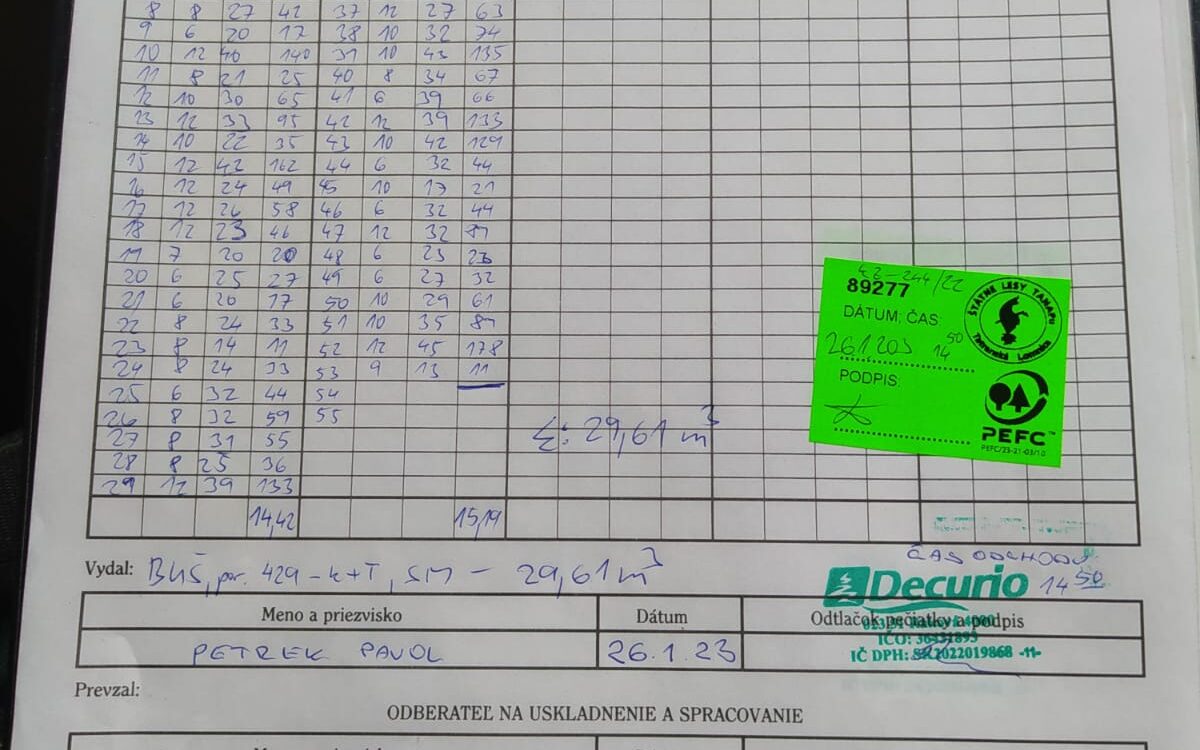 8 8 27 42 37 12 27 63
9 6 20 17 38 10 32 74
10 12 40 140 39 10 43 135
11 8 21 25 40 8 34 67
12 10 30 65 41 6 39 66
13 12 33 95 42 12 39 133
14 10 22 35 43 10 42 129
15 12 42 162 44 6 32 44
16 12 24 49 45 10 17 21
17 12 26 58 46 6 32 44
18 12 23 46 47 12 32 89
19 7 20 20 48 6 23 23
20 6 25 27 49 6 27 32
21 6 20 17 50 10 29 61
22 8 24 33 51 10 35 89
23 8 14 11 52 12 45 178
24 8 24 33 53 9 13 11
25 6 32 44 54
26 8 32 59 55
27 8 31 55
28 8 25 36
29 12 39 133
Σ: 29,61 m³
14,42 15,19
89277
DÁTUM, ČAS:
26.1.203 14 50
PODPIS:
ŠTÁTNE LESY TANAPu
Tatranská Lomnica
PEFC™
PEFC/23-21-03/10
Vydal: BUŠ, por. 429 - k+T, SM - 29,61 m³
ČAS ODCHODU
14 50
Decurio
Meno a priezvisko Dátum Odtlačok pečiatky a podpis
IČO: 36451893
PETREK PAVOL 26.1.23
IČ DPH: SK2022019868 -11-
Prevzal:
ODBERATEĽ NA USKLADNENIE A SPRACOVANIE